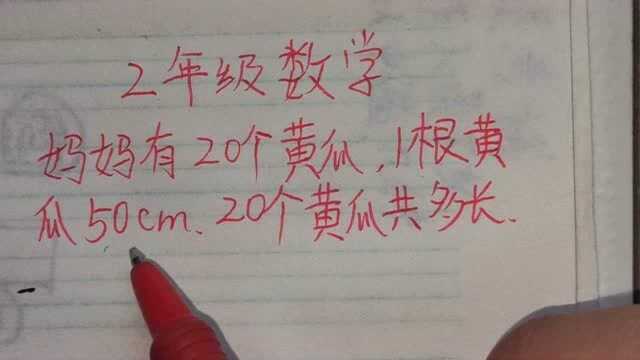 2年级数学
妈妈有20个黄瓜,1根黄
瓜50cm、20个黄瓜共多长.